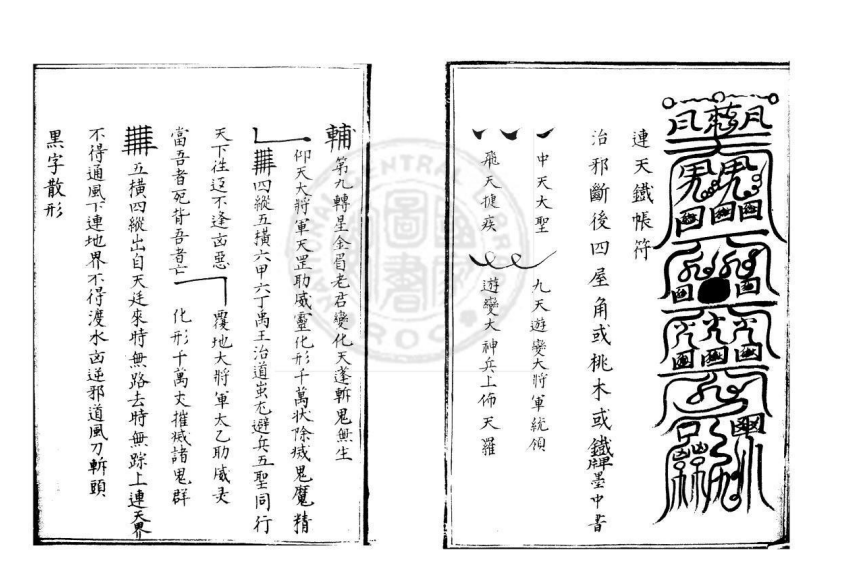 連天鐵帳符
治邪斷後四屋角或桃木或鐵牌墨中書
中天大聖 九天遊變大將軍統領
飛天捷疾 遊變大神兵上佈天羅
輔第九轉星金眉老君變化天蓬斬鬼無生
仰天大將軍天罡助威靈化形千萬狀除滅鬼魔精
四縱五橫六甲六丁禹王治道蚩尤避兵五聖同行
天下往迓不逢凶惡 覆地大將軍太乙助威灵
當吾者死背吾者亡 化形千萬丈摧滅諸鬼群
五橫四縱出自天廷來時無路去時無踪上連天界
不得通風下連地界不得渡水凶逆邪道風刀斬頭
黑字散形